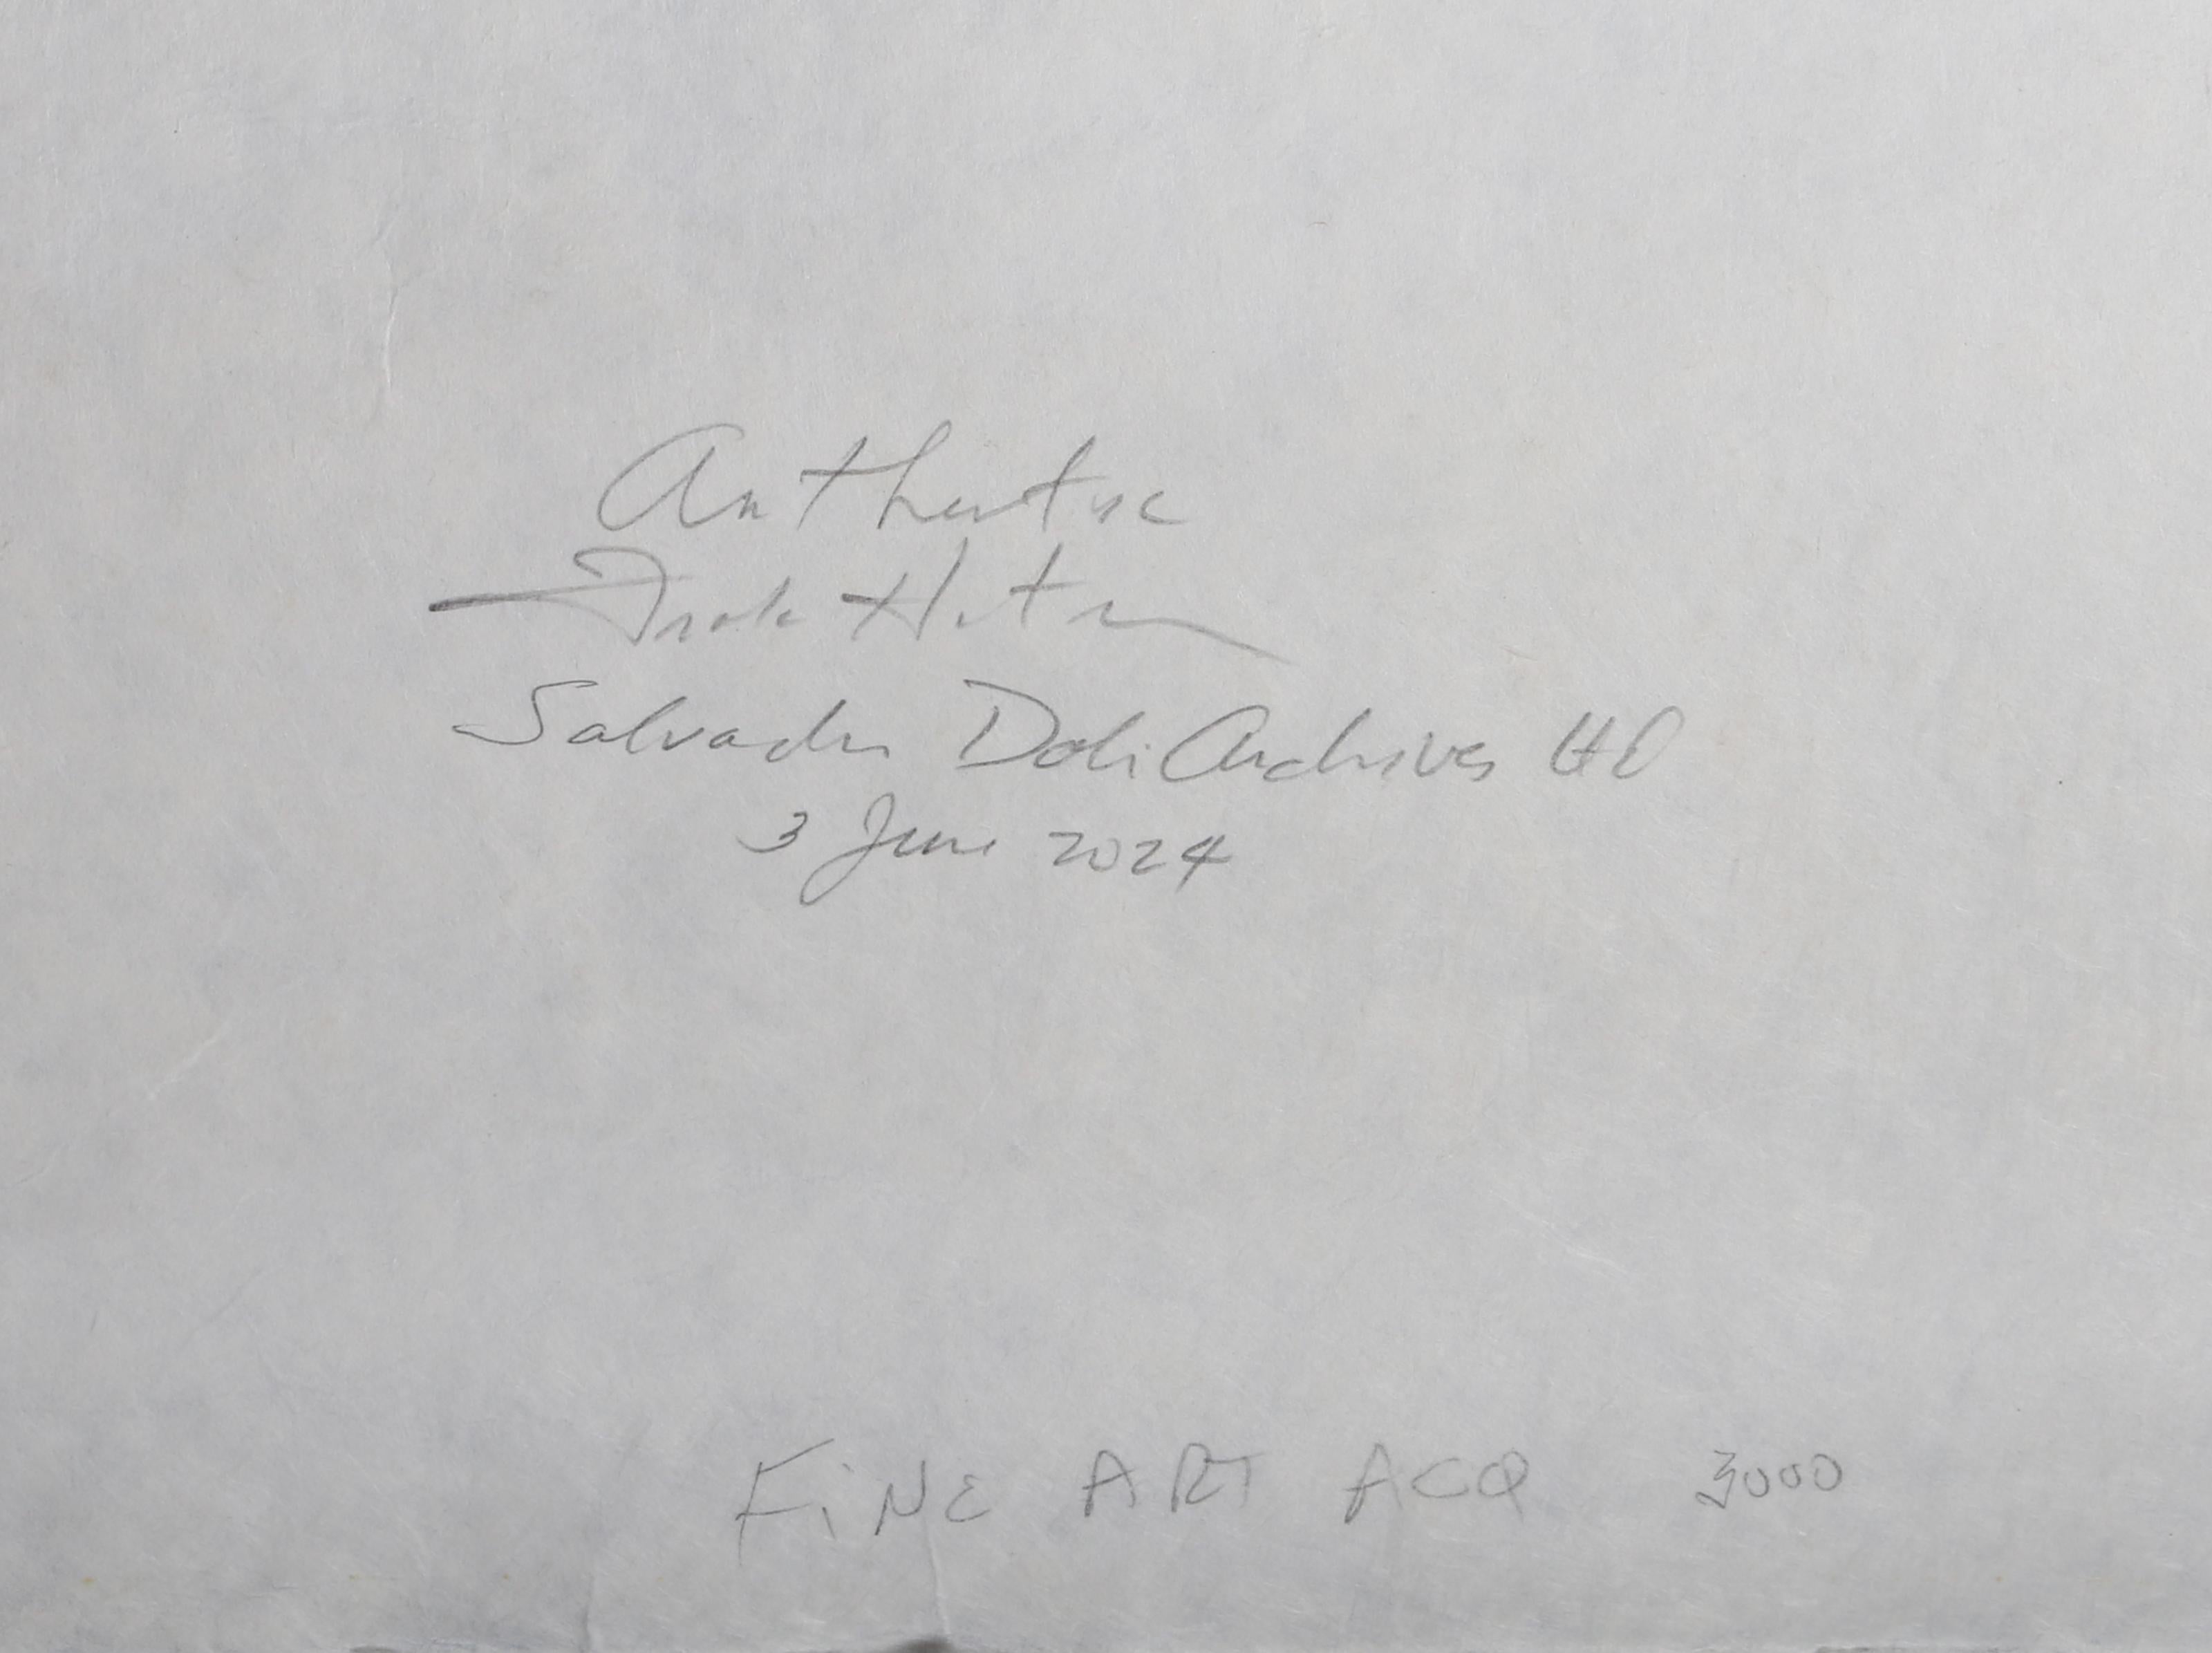 Authentic
Frank Hunter
Salvador Dali Archives Ltd
3 June 2024
FiNE ART ACQ 3000